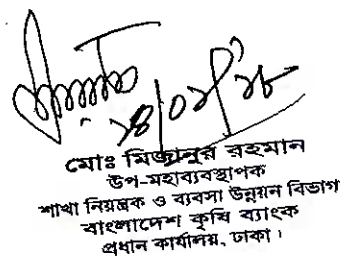 মোঃ মিজানুর রহমান
উপ-মহাব্যবস্থাপক
শাখা নিয়ন্ত্রক ও ব্যবসা উন্নয়ন বিভাগ
বাংলাদেশ কৃষি ব্যাংক
প্রধান কার্যালয়, ঢাকা।